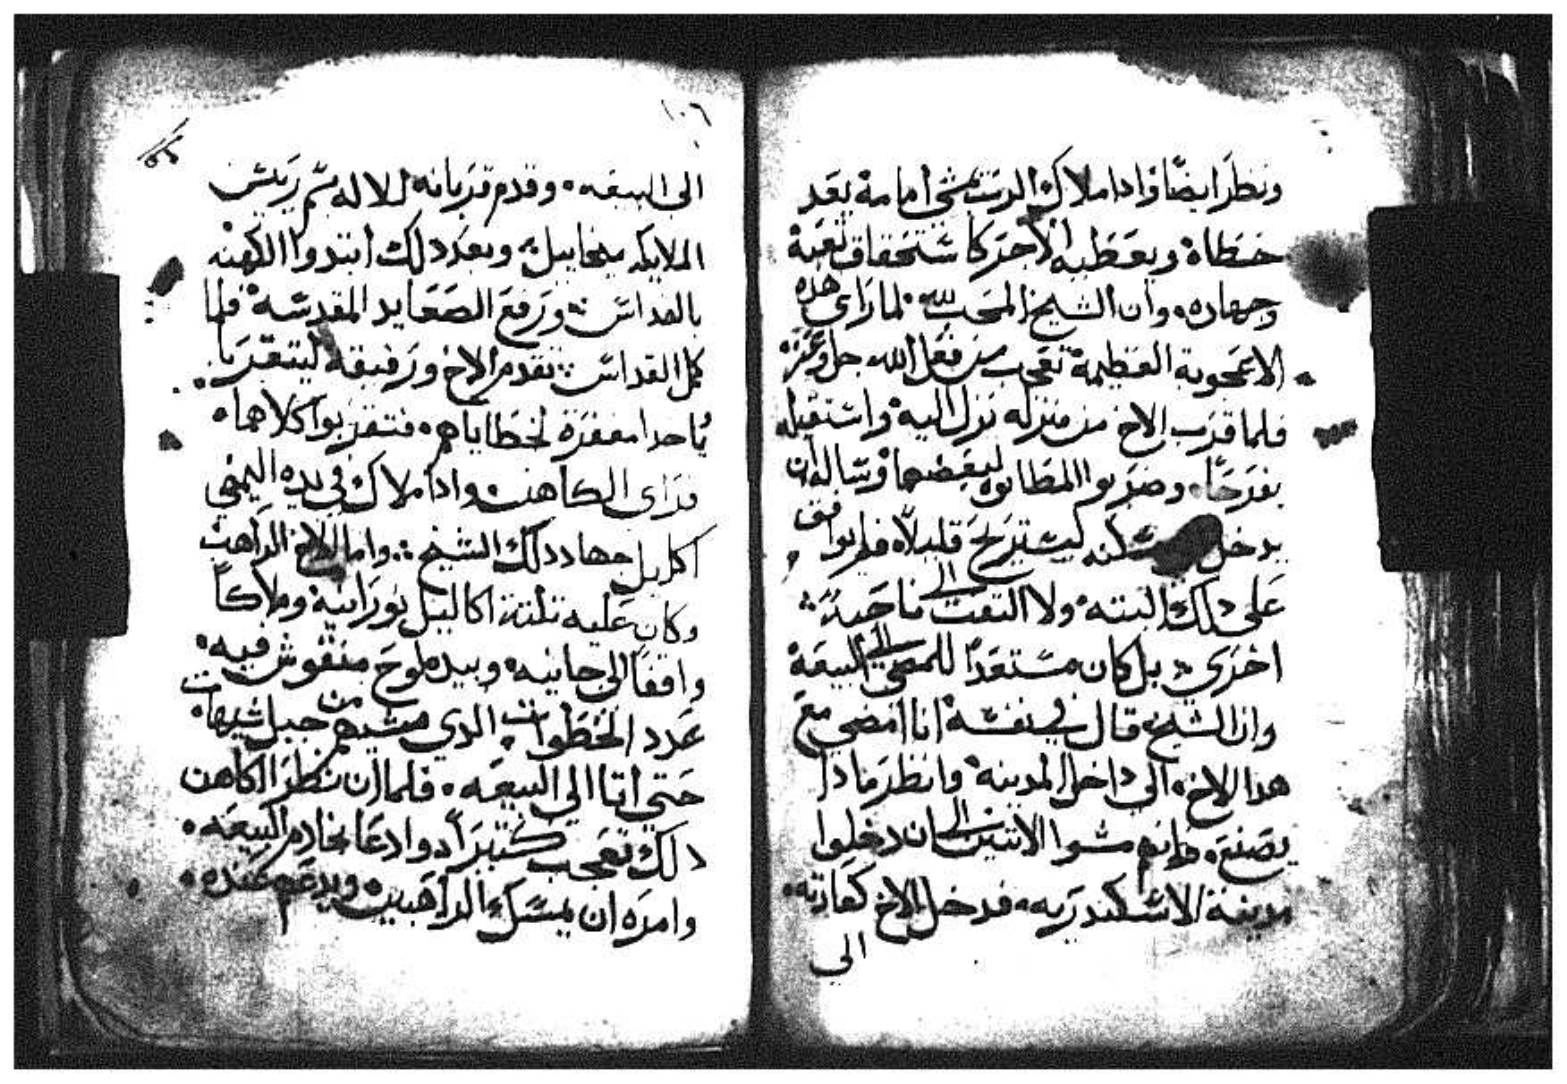 ونظر ايضًا واذا ملاك الرب يمشي امامه يعد
خطاه ويعطيه الاجر كاستحقاق تعبه
وجهاده. وان الشيخ المحب لله لما راى هذه
الاعجوبة العظيمة تعجب من فعل الله جل وعز
فلما قرب الاخ من منزله نزل اليه واستقبله
بفرحًا. وضربوا المطانوه لبعضهما وساله ان
يدخل مسكنه ليستريح قليلًا فلم يوافق
على ذلك البته. ولا التفت الى ناحية
اخرى بل كان مستعدًا للمضي الى البيعة
وان الشيخ قال في نفسه انا امضي مع
هذا الاخ. الى داخل المدينه وانظر ماذا
يصنع. وانهم مشوا الاتنين الى ان دخلوا
مدينة الاسكندريه. فدخل الاخ كعادته.
الى
١٠٦
الى البيعه. وقدم قربانه للاله بسم ريس
الملايكه ميخاييل وبعد دلك ابتدوا الكهنه
بالقداس ورفع الصعايد المقدسه فلما
كمل القداس تقدم الاخ ورفيقه ليتقربا
ياخدا مغفرة لخطاياهم. فتقربوا كلاهما.
فراى الكاهن واذا ملاك في يده اليمنى
اكليل جهاد دلك الشيخ واما الاخ الراهب
وكان عليه تلتة اكاليل نورانية وملاكًا
واقفًا الى جانبه. وبيده لوح منقوش فيه.
عدد الخطوات الدي مشيهم من جبل شيهات
حتى اتا الى البيعه. فلما ان نظر الكاهن
دلك تعجب كتيرًا. وادعا بخادم البيعه.
وامره ان يمسك الراهبين ويدعهم عنده.